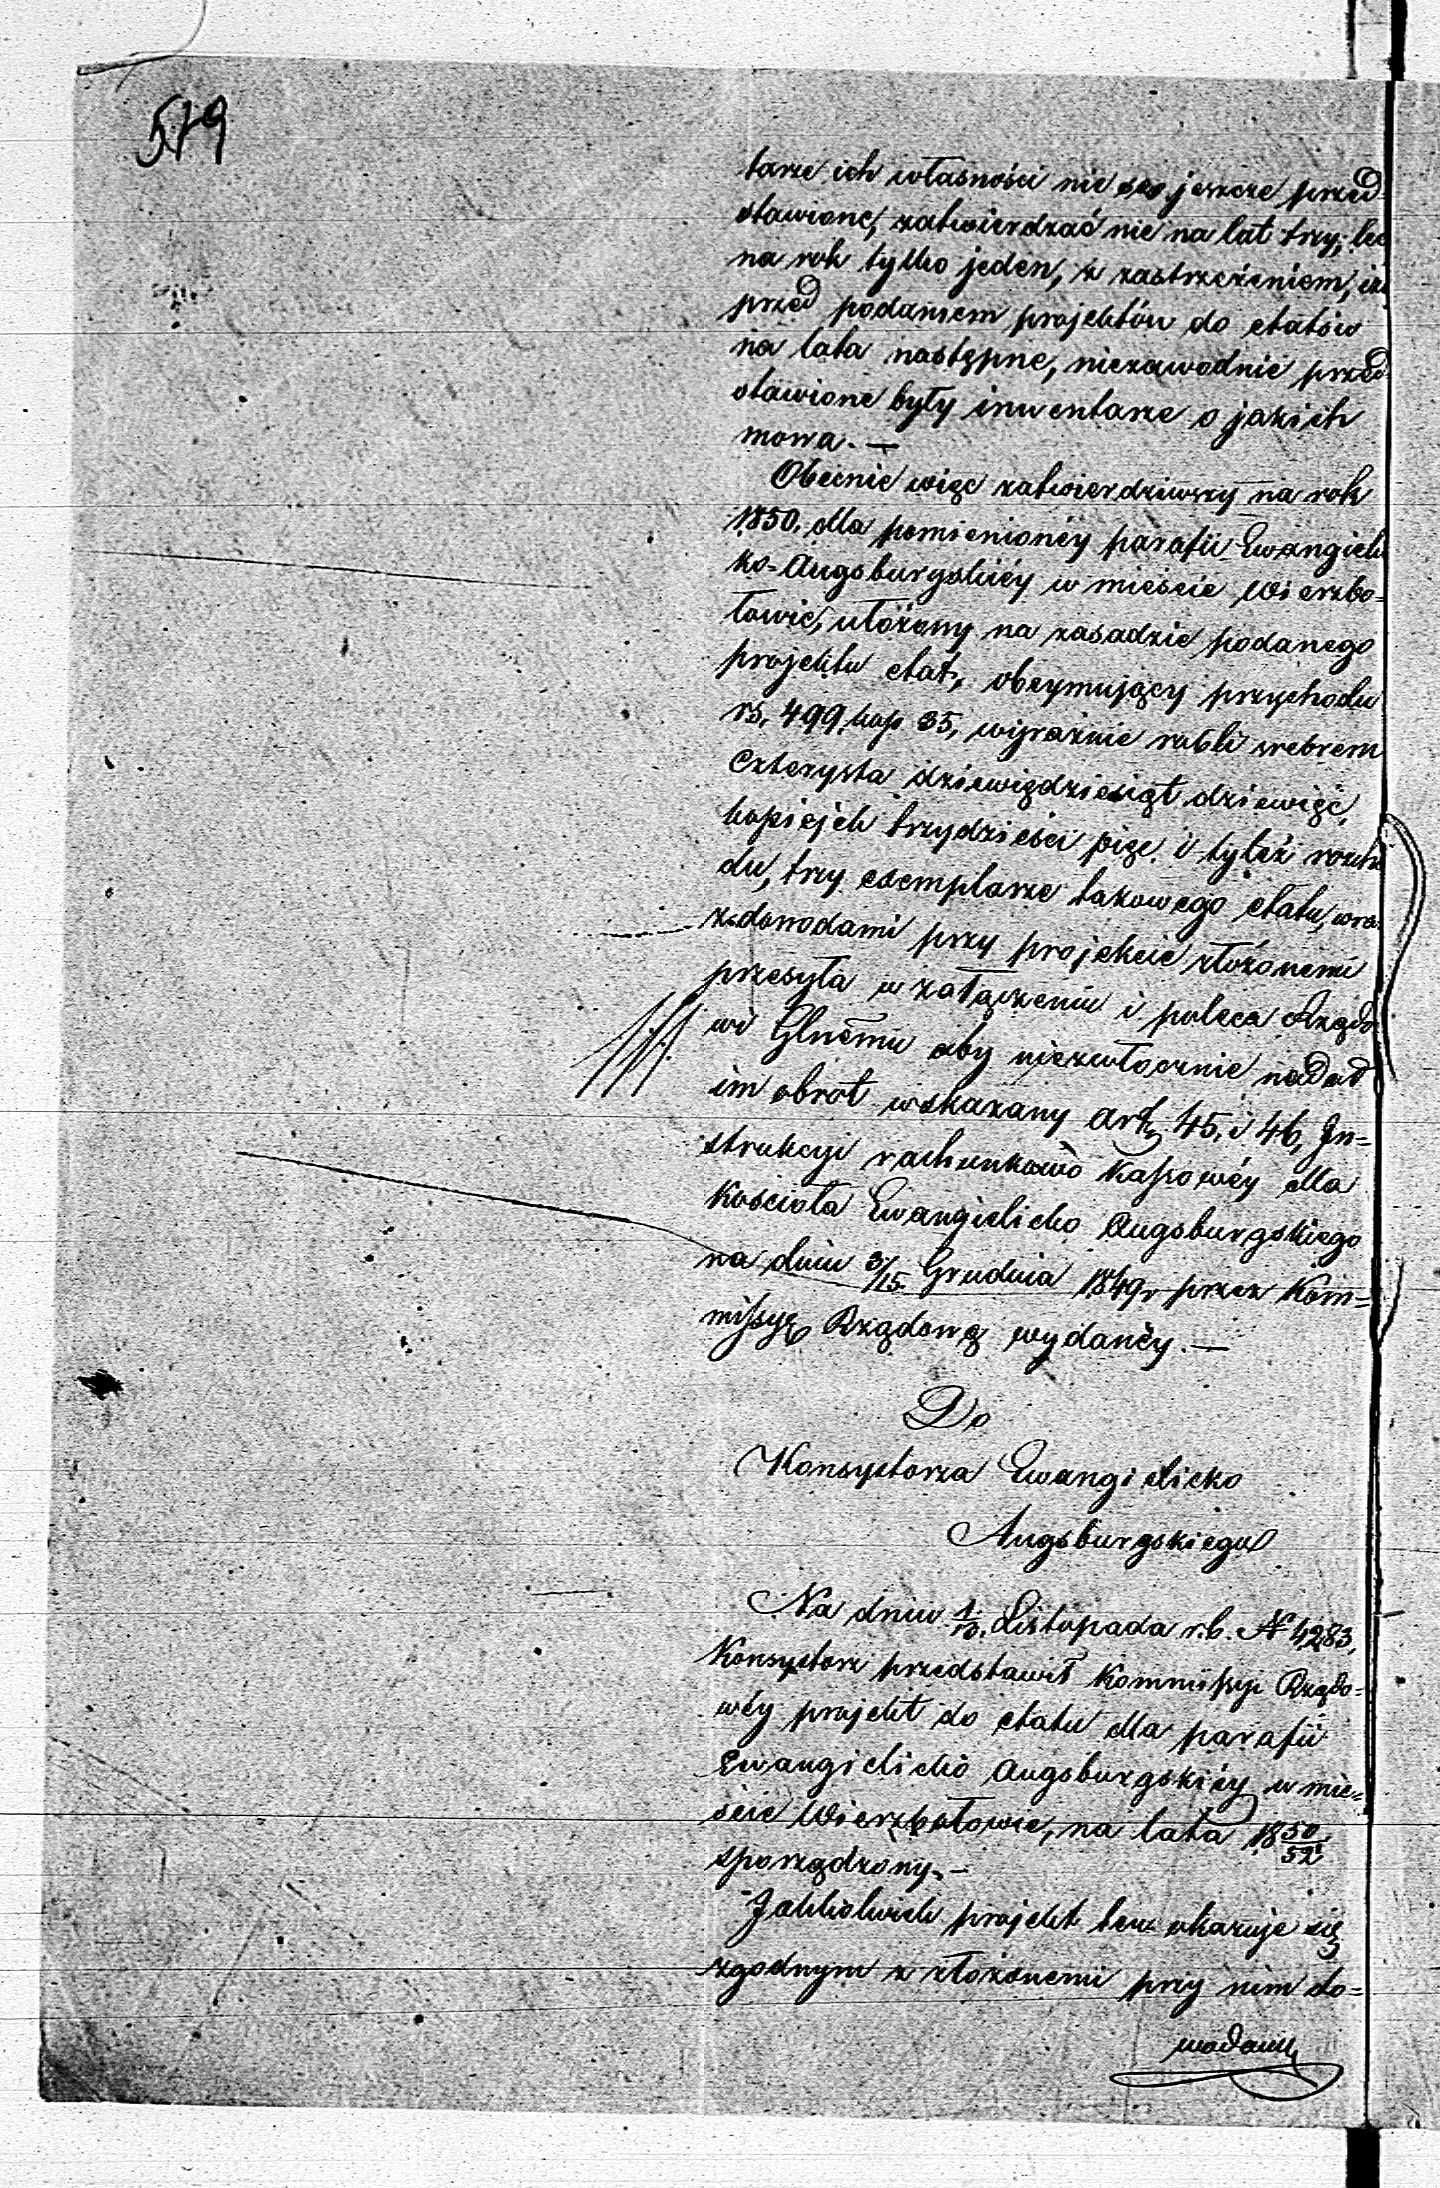 579
tarze ich własności nie są jeszcze przed
stawione, zatwierdzać nie na lat trzy, lec
na rok tylko jeden, z zastrzeżeniem, iż
przed podaniem projektów do etatów
na lata następne, niezawodnie przed
stawione były inwentarze o jakich
mowa. —
Obecnie więc zatwierdziwszy na rok
1850. dla pomienionéy parafii Ewangieli
ko-Augsburgskiéy w mieście Wierzbo=
łowie, ułożony na zasadzie podanego
projektu etat, obeymujący przychodu
rs. 499. kop 35, wyraźnie rubli srebrem
czterysta dziewięćdziesiąt dziewięć,
kopiejek trzydzieści pięć i tyleż rozch
du, trzy exemplarze takowego etatu, wra
z dowodami przy projekcie złożonemi
przesyła w załączeniu i poleca Rządo
wi Glnemu aby niezwłocznie nadał
im obrot wskazany art. 45. i 46, In=
strukcyi rachunkowo Kassowéy dla
Kościoła Ewangielicko Augsburgskiego
na dniu 3/15 Grudnia 1849 r przez Kom=
missyę Rządową wydanéy. —
Do
Konsystorza Ewangielicko
Augsburgskiego
Na dniu 1/13. Listopada r.b. N 4283,
Konsystorz przedstawił Kommissyi Rządo=
wéy projekt do etatu dla parafii
Ewangielicko Augsburgskiéy w mie=
ście Wierzbołowie, na lata 1850/52
sporządzony. —
Jakkolwiek projekt ten okazuje się
zgodnym z złożonemi przy nim do=
wodami